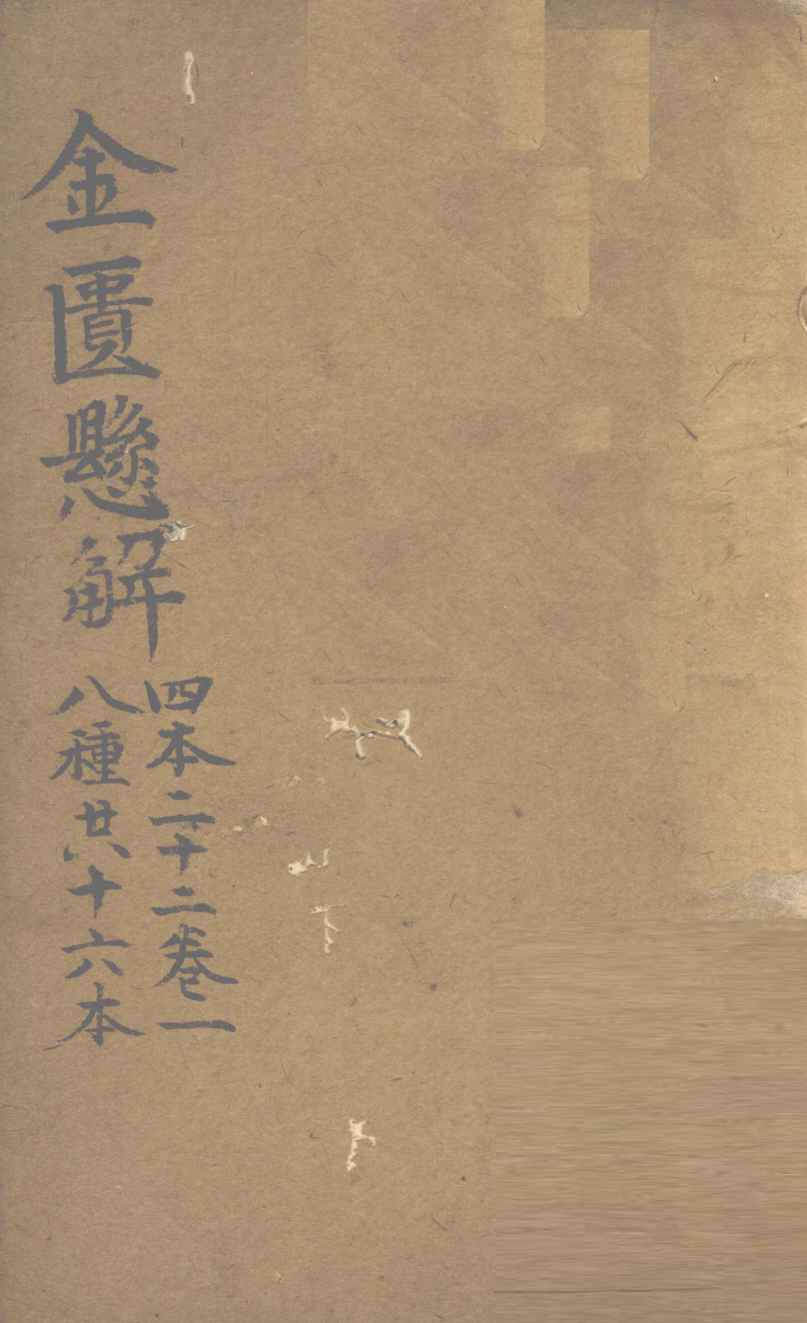 金匱懸解
四本二十二卷一
八種共十六本